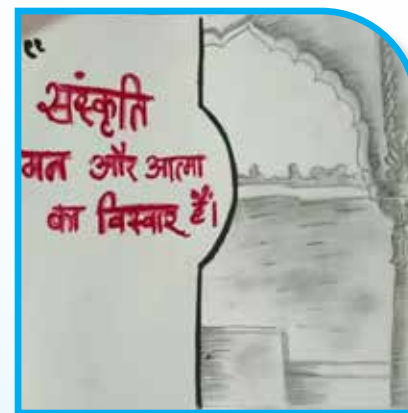 "
संस्कृति
मन और आत्मा
का विस्वार हैं।